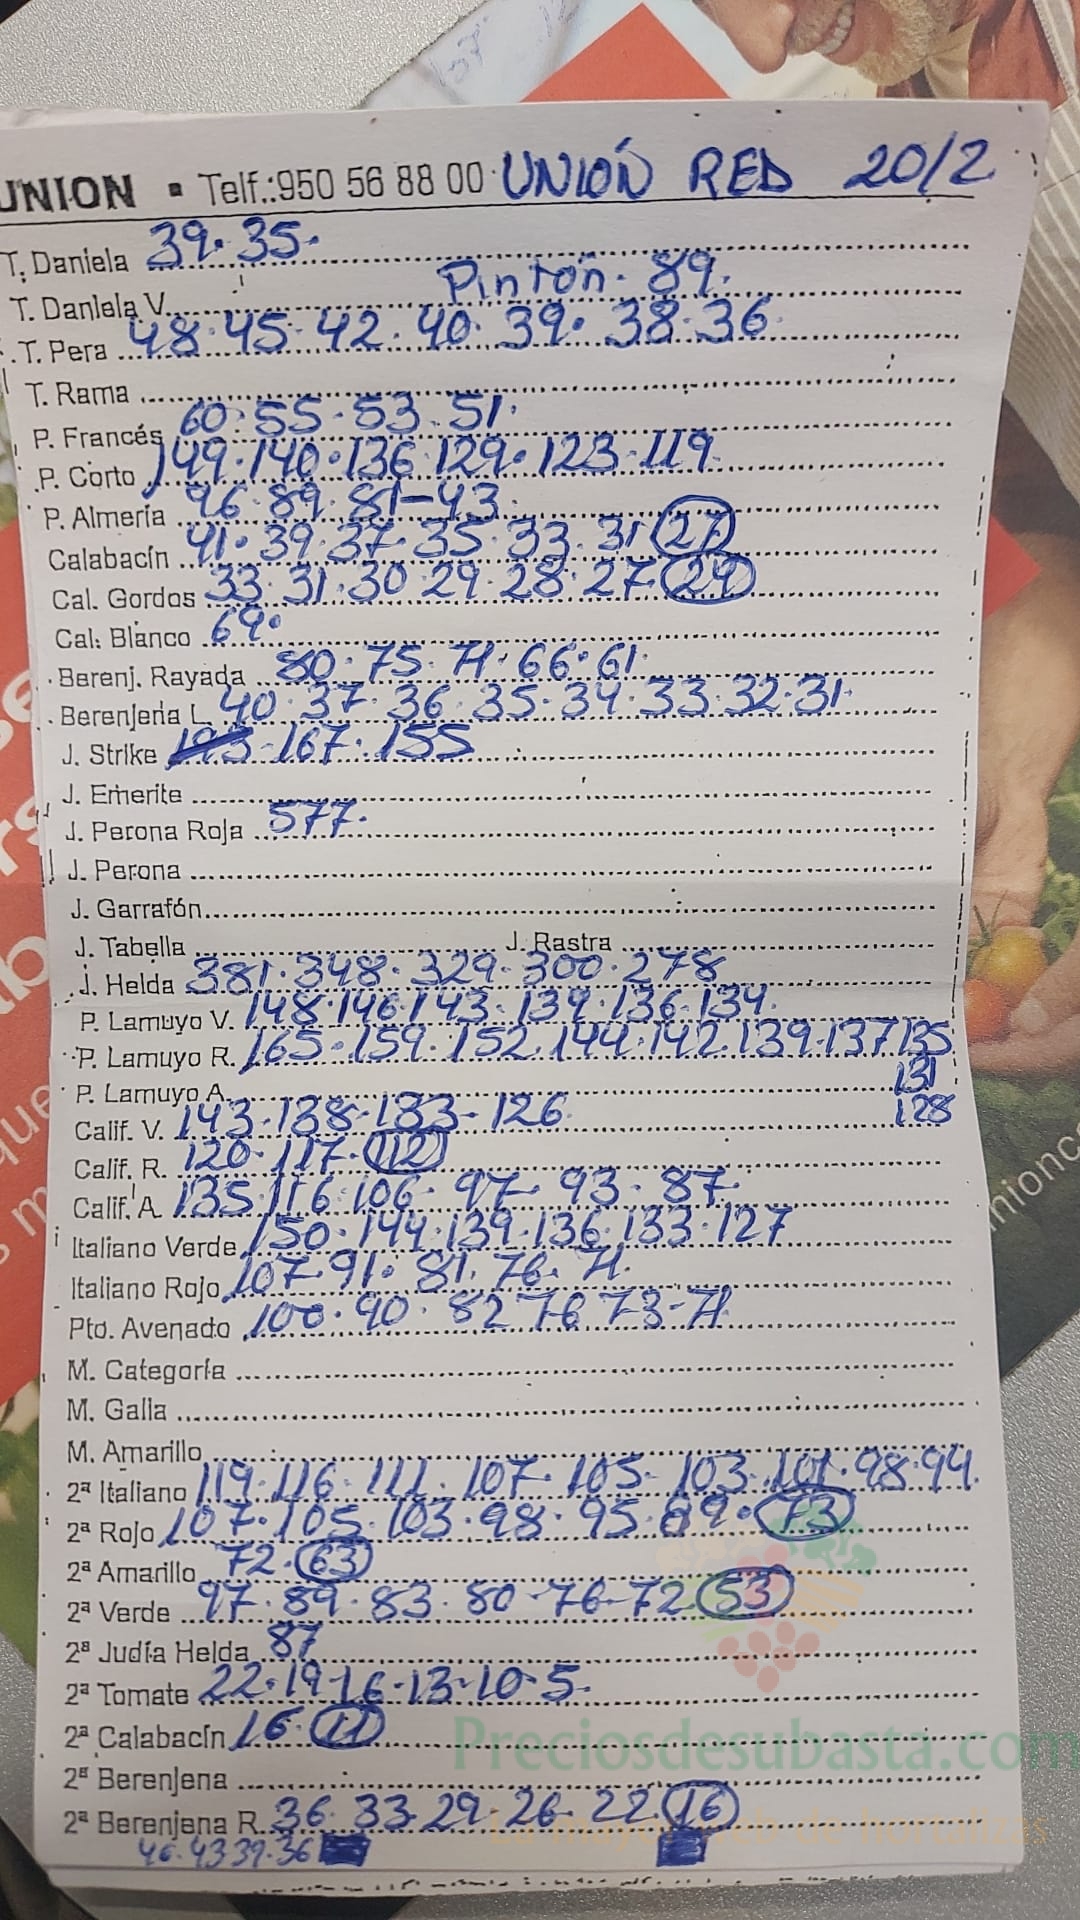 UNION · Telf.:950 56 88 00 UNIÓN RED 20/2
T. Daniela 39. 35.
T. Daniela V. Pintón. 89.
T. Pera 48. 45. 42. 40. 39. 38. 36
T. Rama
P. Francés 60. 55. 53. 51.
P. Corto 149. 140. 136. 129. 123. 119
P. Almería 96. 89. 81-43.
Calabacín 41. 39. 37. 35. 33. 31 27
Cal. Gordos 33. 31. 30. 29. 28. 27 24
Cal. Blanco 69.
Berenj. Rayada 80. 75. 71. 66. 61.
Berenjena L. 40. 37. 36. 35. 34. 33. 32. 31.
J. Strike 167. 155
J. Emerite
J. Perona Roja 577.
J. Perona
J. Garrafón
J. Tabella J. Rastra
J. Helda 381. 348. 329. 300. 278
P. Lamuyo V. 148. 146. 143. 139. 136. 134.
P. Lamuyo R. 165. 159. 152. 144. 142. 139. 137 135
P. Lamuyo A. 131
Calif. V. 143. 138. 133. 126 128
Calif. R. 120. 117. 112
Calif. A. 135. 116. 106. 97. 93. 87
Italiano Verde 150. 144. 139. 136. 133. 127
Italiano Rojo 107. 91. 81. 76. 71.
Pto. Avenado 100. 90. 82 76 73-71
M. Categoría
M. Galia
M. Amarillo
2ª Italiano 119. 116. 111. 107. 105. 103. 101. 98. 94.
2ª Rojo 107. 105. 103. 98. 95. 89. 73
2ª Amarillo 72. 63
2ª Verde 97. 89. 83. 80-76-72 53
2ª Judía Helda 87
2ª Tomate 22. 19-16-13-10-5.
2ª Calabacín 16. 11
Preciosdesubasta.com
2ª Berenjena
2ª Berenjena R. 36. 33. 29. 26. 22. 16
La mayor web de hortalizas
46. 43 39. 36